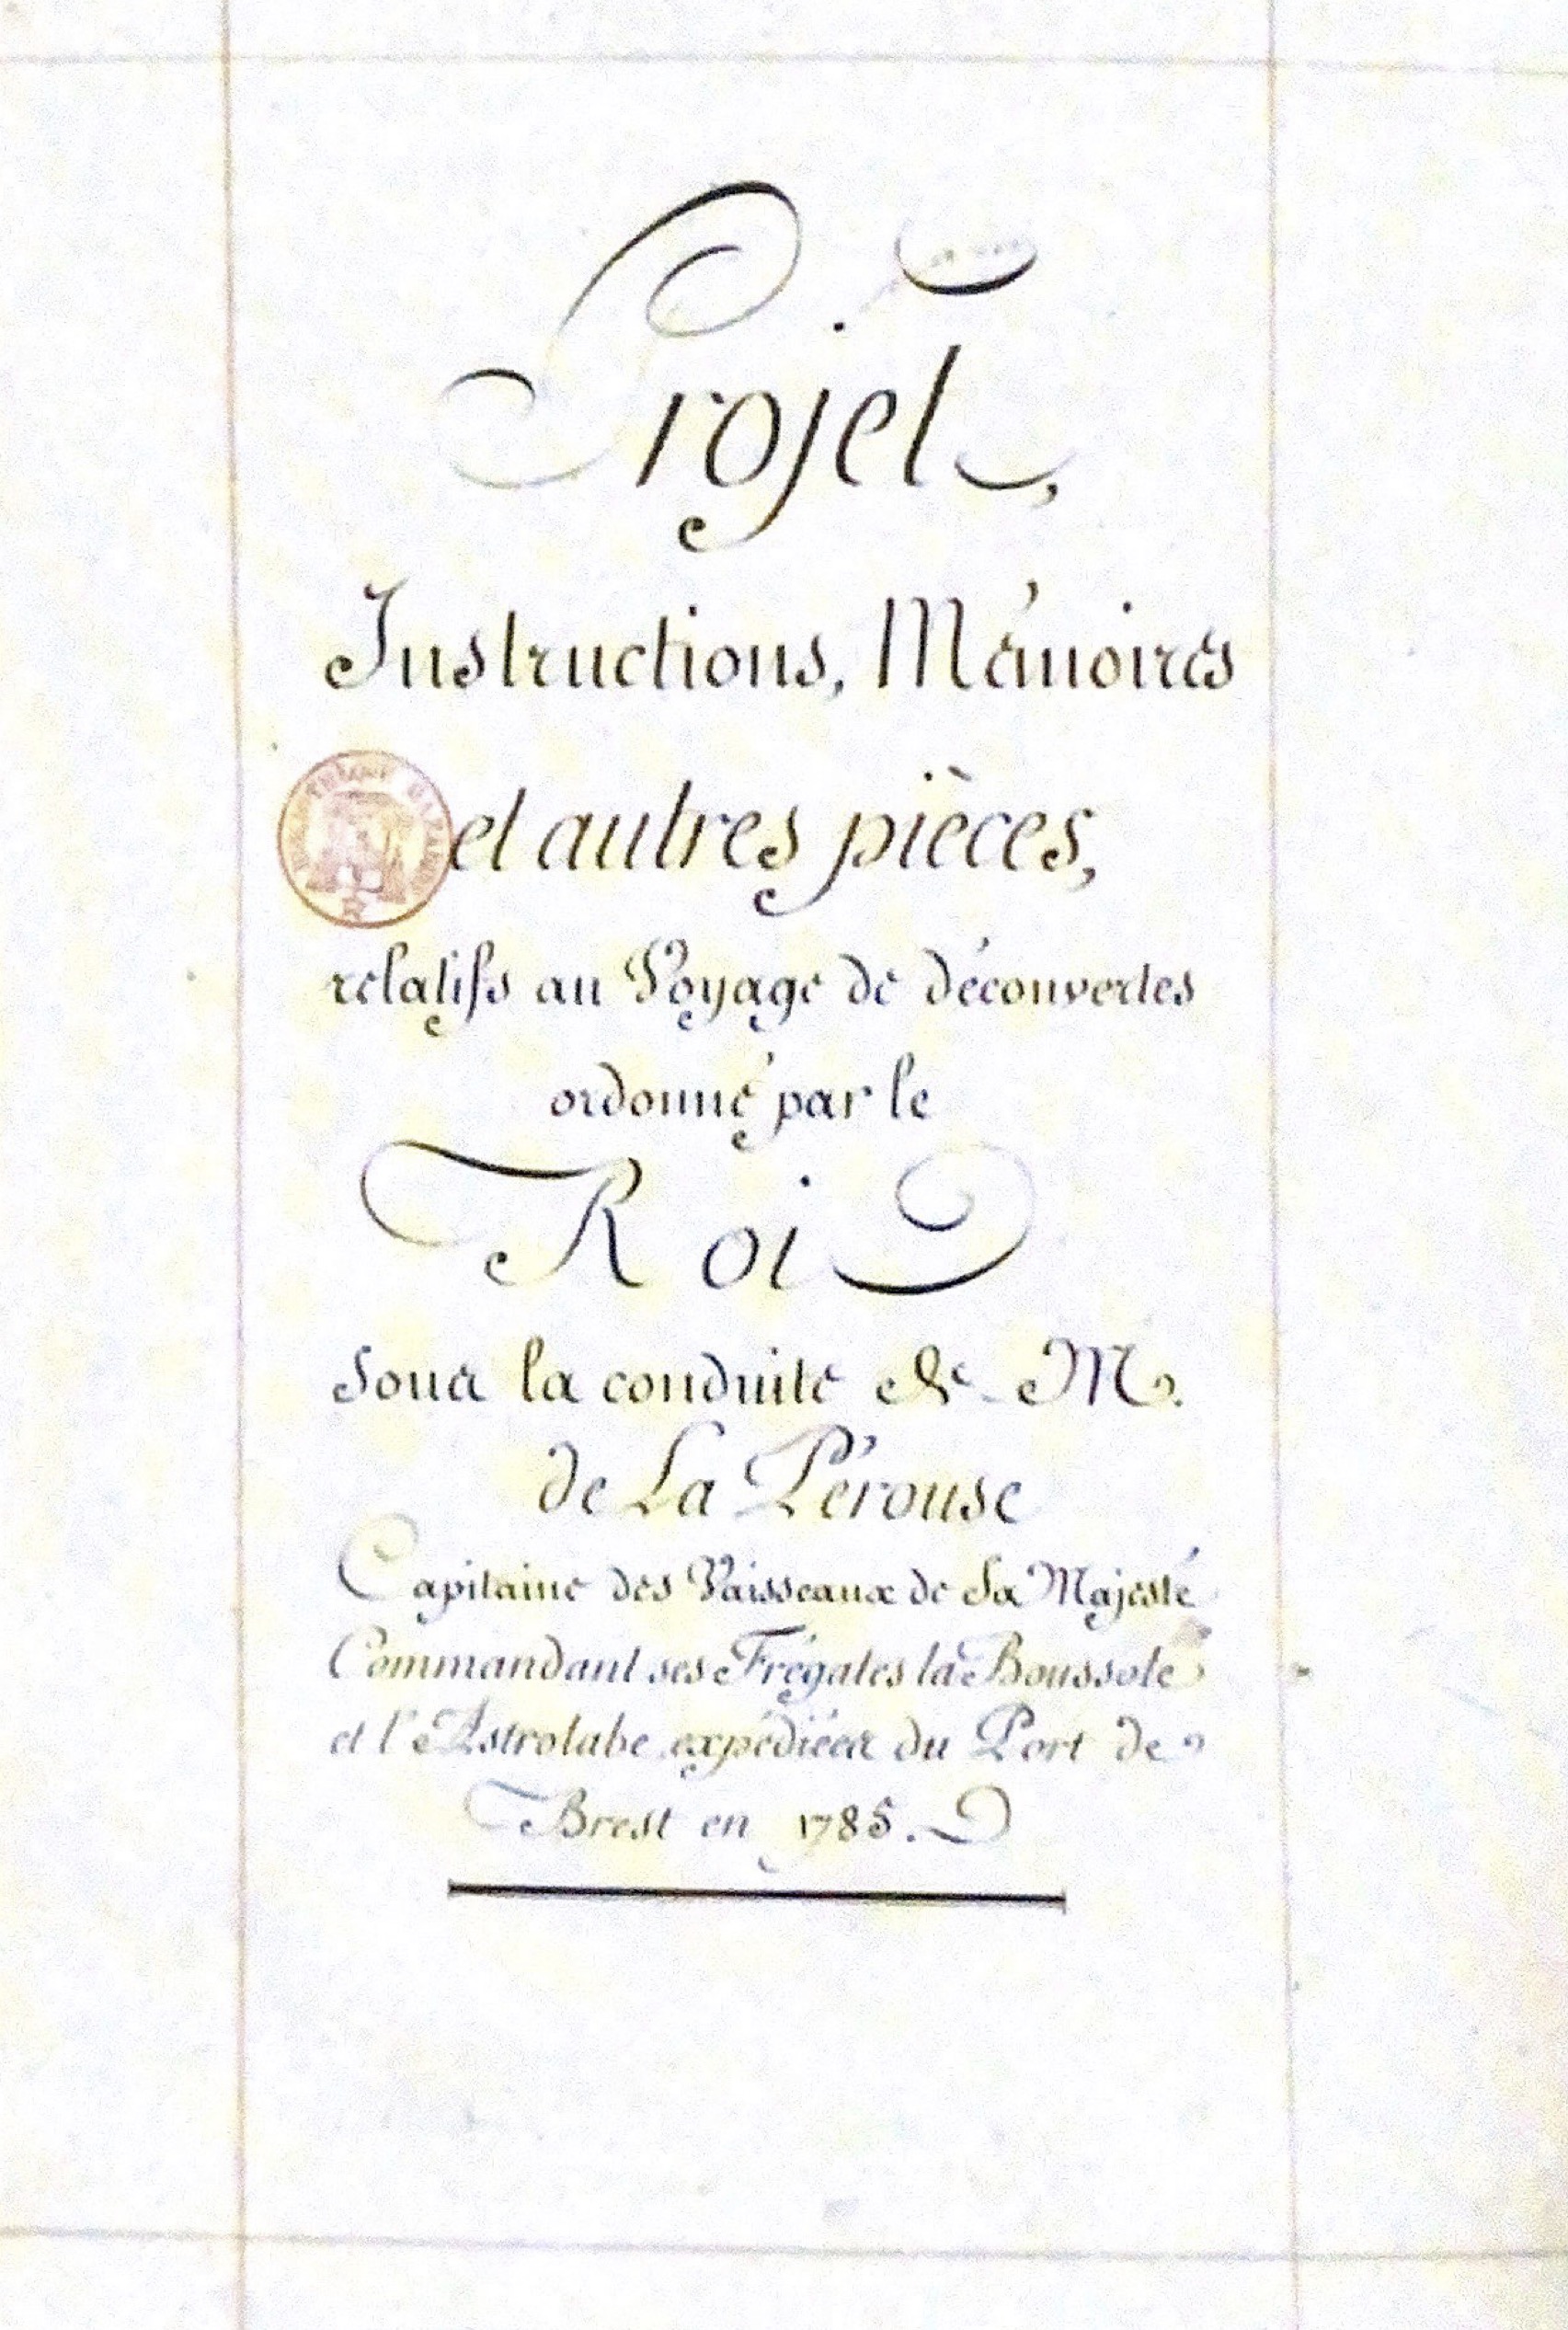 Projet,
Instructions, Mémoires
et autres pièces,
relatifs au Voyage de découvertes
ordonné par le
Roi
Sous la conduite de M.
de La Pérouse
Capitaine des Vaisseaux de Sa Majesté
Commandant ses Frégates la Boussole
et l'Astrolabe expédiées du Port de
Brest en 1785.